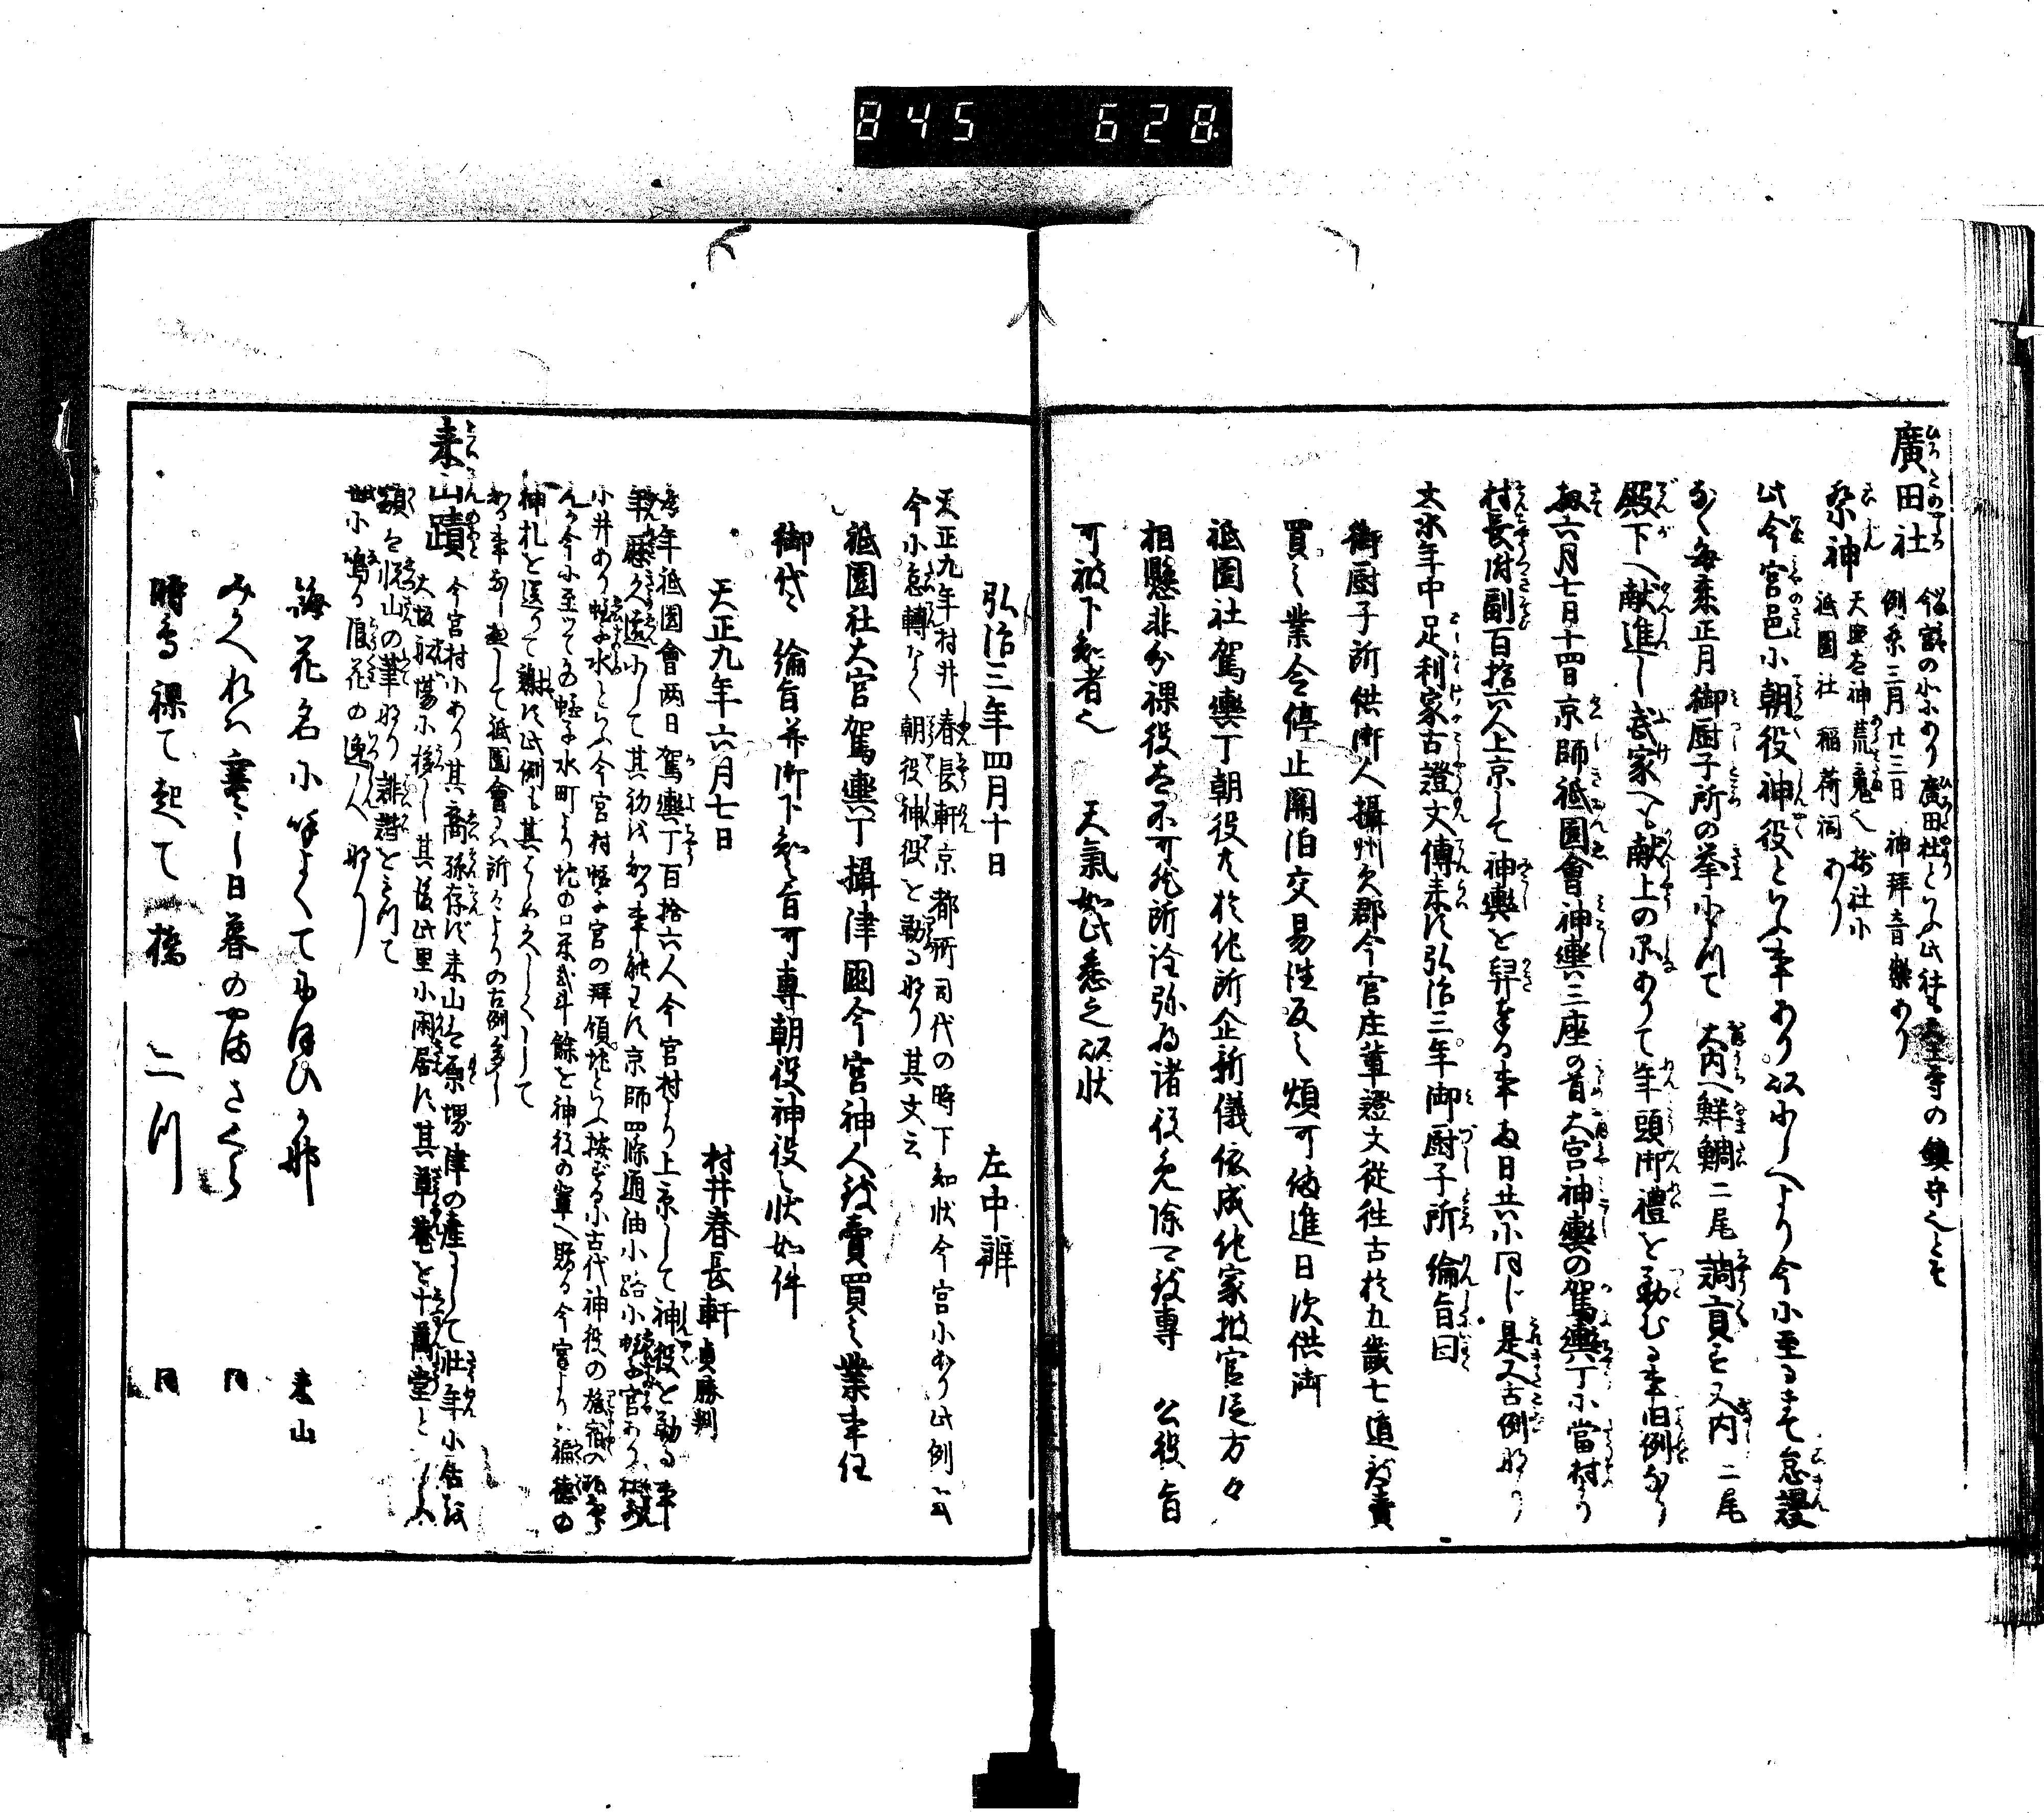 845 628
廣田社 今宮の北にあり廣田杜といふ此社天王寺の鎮守也とそ
例祭三月廿三日 神拜音樂あり
祭神 天照太神荒魂也 摂社に
祇園社 稲荷祠 あり
此今宮邑に朝役神役といふ事あり以にしへより今に至るまて怠謾
なく毎来正月御厨子所の挙によつて 大内へ鮮鯛二尾調貢し又内二尾
殿下へ献進し武家へも献上の品ありて年頭御禮を勤むる事旧例なり
扨六月七日十四日京師祇園會神輿三座の首大宮神輿の駕輿丁に當村より
村長付副百拾六人上京して神輿を舁奉る事両日共に同じ是又古例なり
文永年中足利家古證文傳来す弘治三年御厨子所綸旨曰
御厨子所供御人攝州欠郡今宮庄輩證文従往古於五畿七道致賣
買之業令停止關泊交易往反之煩可備進日次供御
祇園社駕輿丁朝役尤於他所企新儀依成他家被官從方々
相懸非分課役者不可然所詮弥為諸役免除可致專 公役旨
可被下知者也 天氣如此悉之以状
弘治三年四月十日 左中辨
天正九年村井春長軒京都所司代の時下知状今宮にあり此例に
今に怠轉なく朝役神役を勤るなり其文云
祇園社大宮駕輿丁攝津國今宮神人致賣買之業事任
御代々 綸旨并御下知之旨可專朝役神役之状如件
天正九年六月七日 村井春長軒貞勝判
毎年祇園會両日駕輿丁百拾六人今宮村より上京して神役を勤る事
年暦久遠にして其初を知る事能はす京師四條通油小路に蛭子宮あり
小井あり蛭子水といふ今宮村蛭子宮の拜領地といふ按ずるに古代神役の旅宿の
今に至つての蛭子水町より地の口米貳斗餘を神役の輩へ贈る今宮よりハ福徳の
神札を送りて謝す此例も其はしめ久しくして
知る事なし惣して祇園會ハ所々よりの古例多し
来山蹟 今宮村にあり其裔孫存す来山は原堺津の産にして壮年に倍
大坂船場に移し其後此里に閑居す其草菴を十萬堂といふ
額を山の筆なり誹諧をもつて
世に鳴る浪花の逸人なり
梅花名に呼よくてにほひか那 来山
みかへれハ寒し日暮の山さくら 同
時鳥裸て起て橋二つ 同